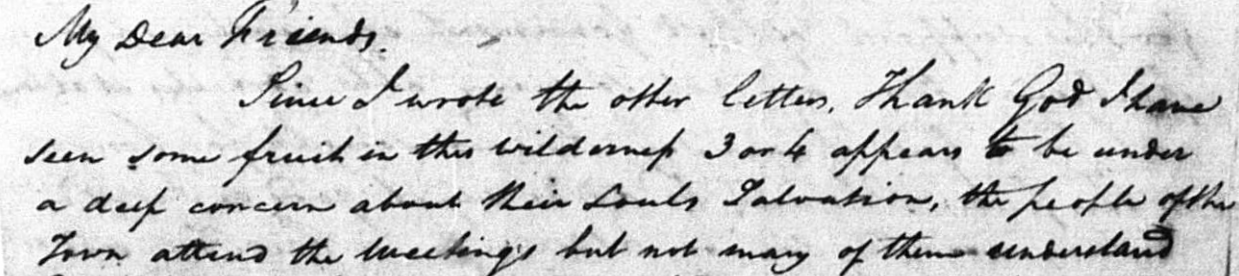 My Dear Friends.
Since I wrote the other letters, Thank God I have
seen some fruit in this wilderness 3 or 4 appears to be under
a deep concern about their Souls Salvation, the people of the
Town attend the Meetings but not many of them understand